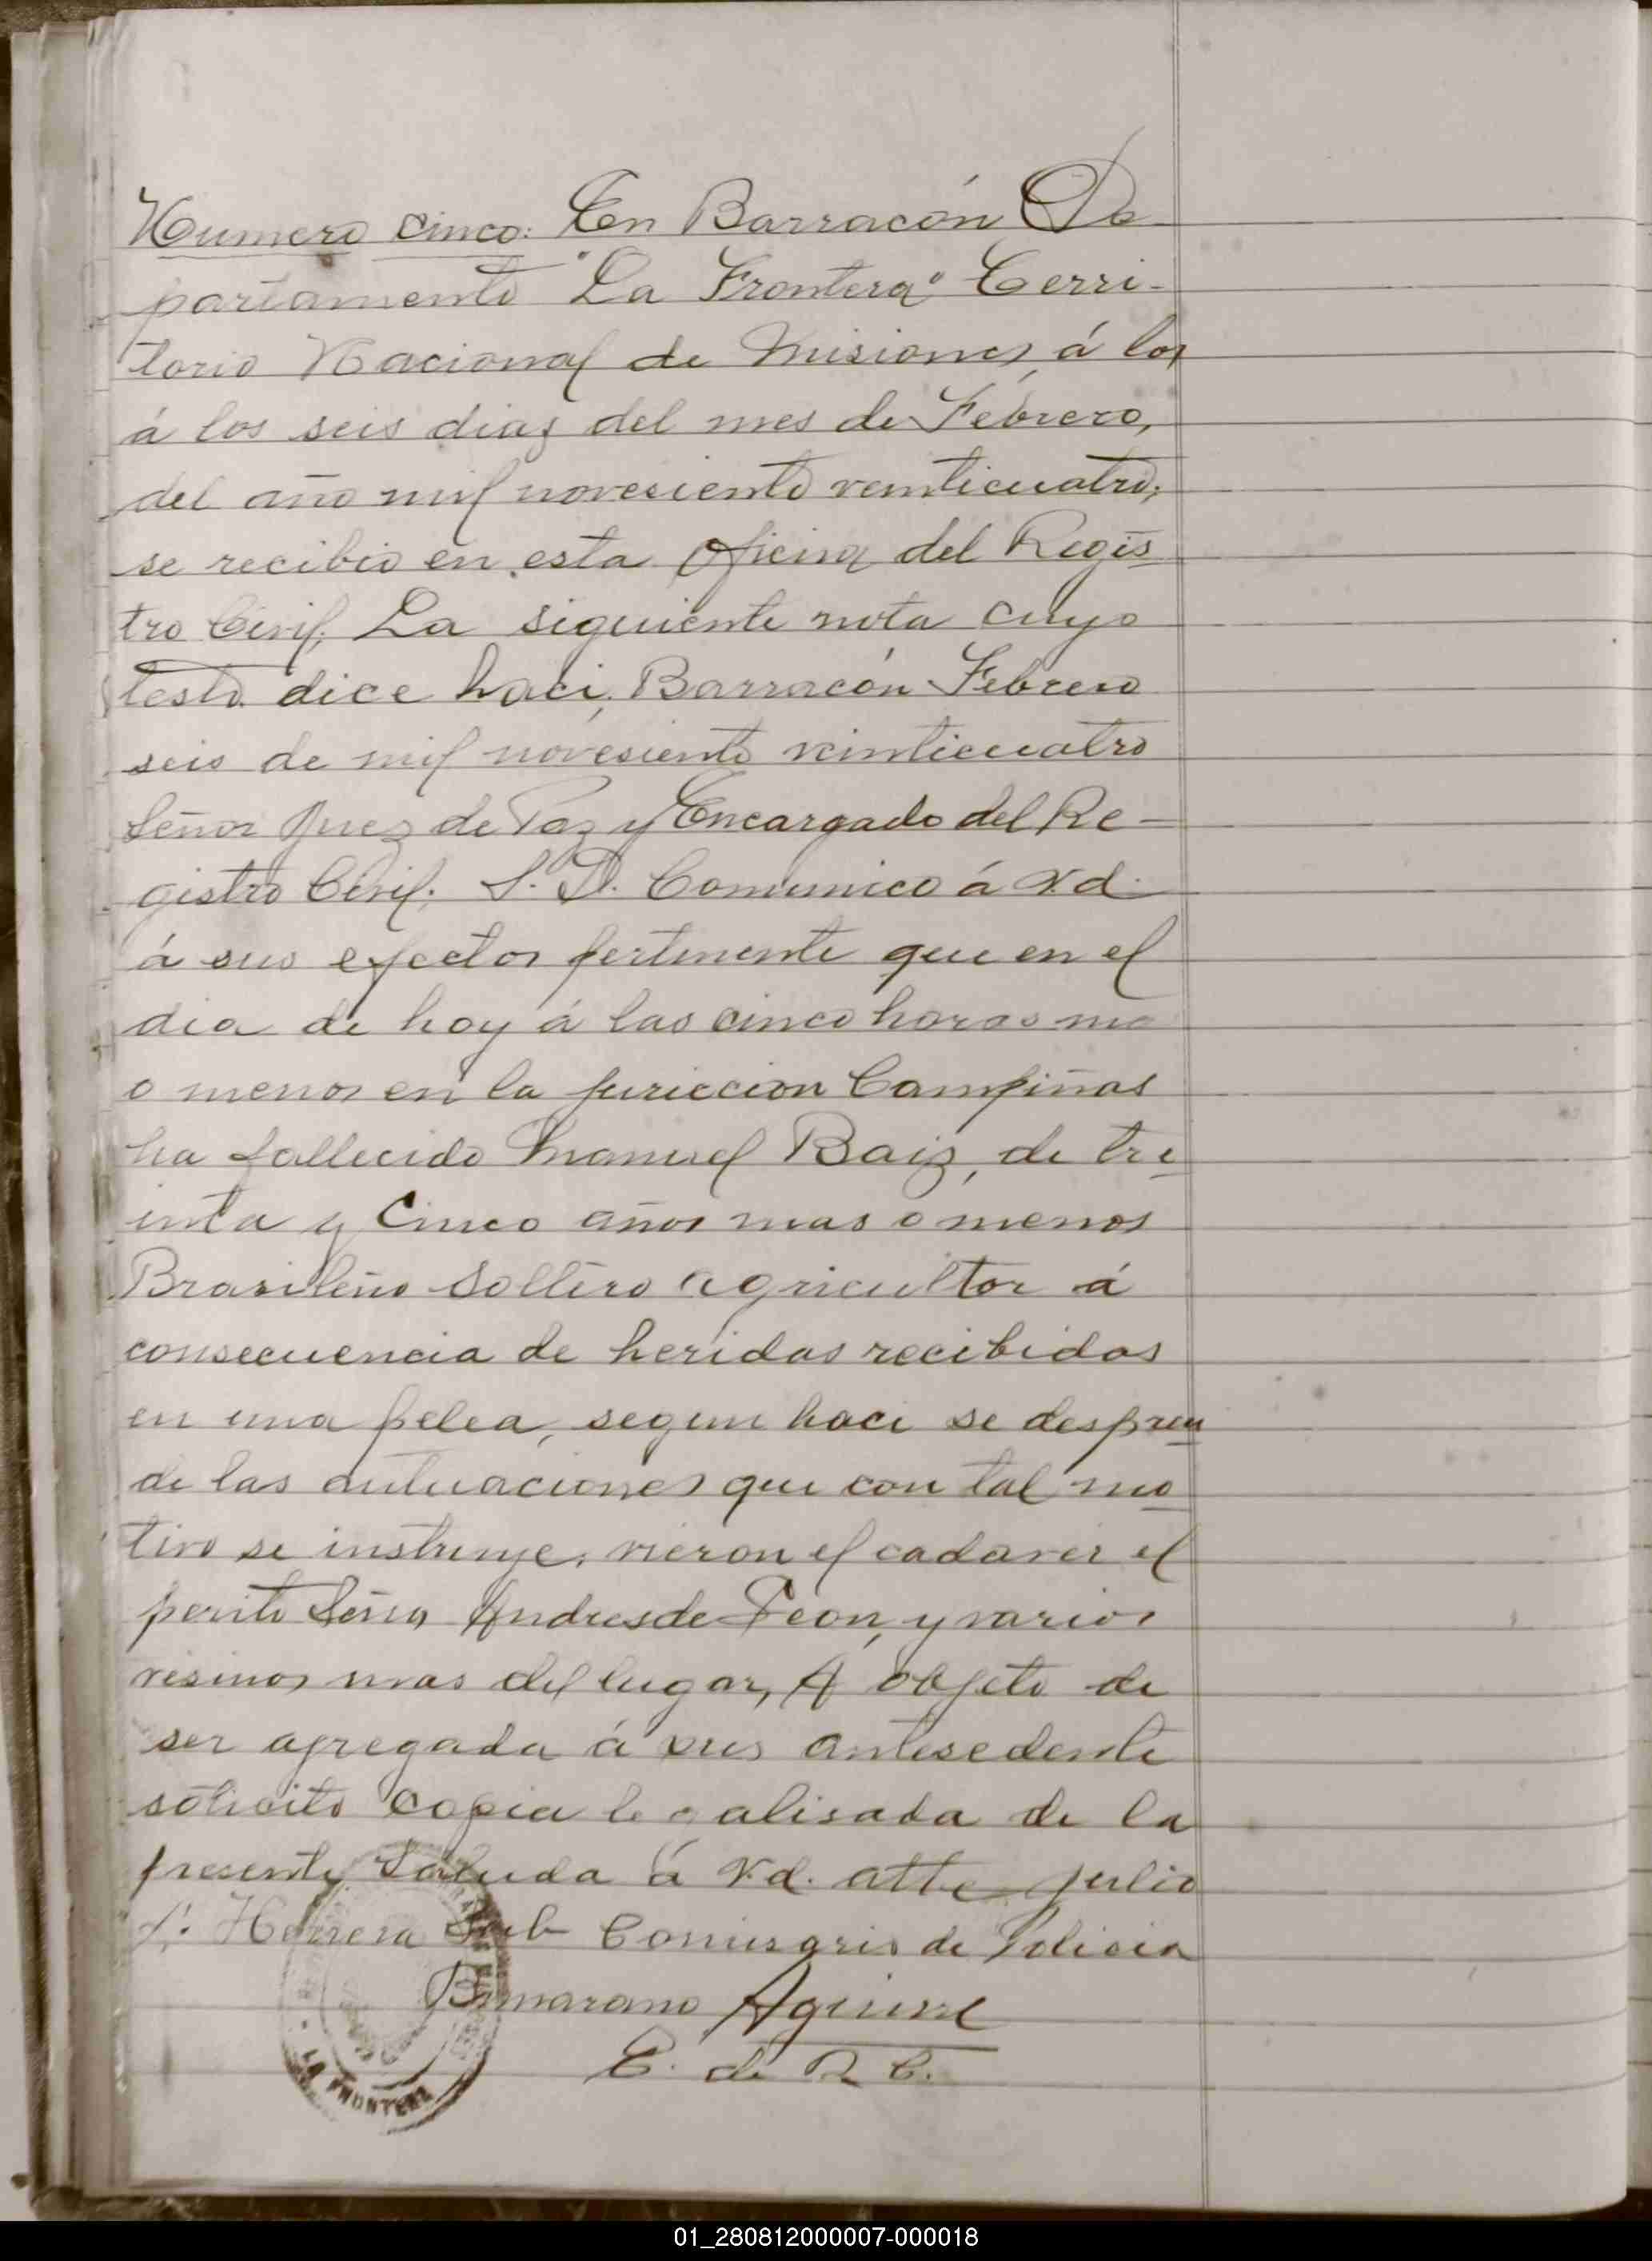 Numero cinco: En Barracón De
partamento "La Frontera" Terri-
torio Nacional de Misiones, á los
á los seis diaz del mes de Febrero,
del año mil novesiento venticuatro;
se recibio en esta oficina del Regis
tro Civil; La siguiente nota cuyo
testo dice haci; Barracón Febrero
seis de mil novesiento veinticuatro
Señor Juez de Paz y Encargado del Re-
gistro Civil; S. D. Comunico á V.d.
á sus efectos pertinente que en el
dia de hoy á las cinco horas ma
o menos en la juriccion Campiñas
ha fallecido Manuel Baiz, de tre
inta y Cinco años mas o menos
Brasileño Soltero agricultor á
consecuencia de heridas recibidas
en una pelea, segun haci se despren
de las autuaciones que con tal mo
tivo se instruye, vieron el cadaver el
perito Señor Andres de Leon, y varios
vesinos mas del lugar, A objeto de
ser agregada á sus antesedente
solicito copia legalisada de la
presente Saluda á V.d. atte Julio
S. Herrera Sub Comisario de Policia
Aguirre
E. de R C.
LA FRONTERA
01_280812000007-000018